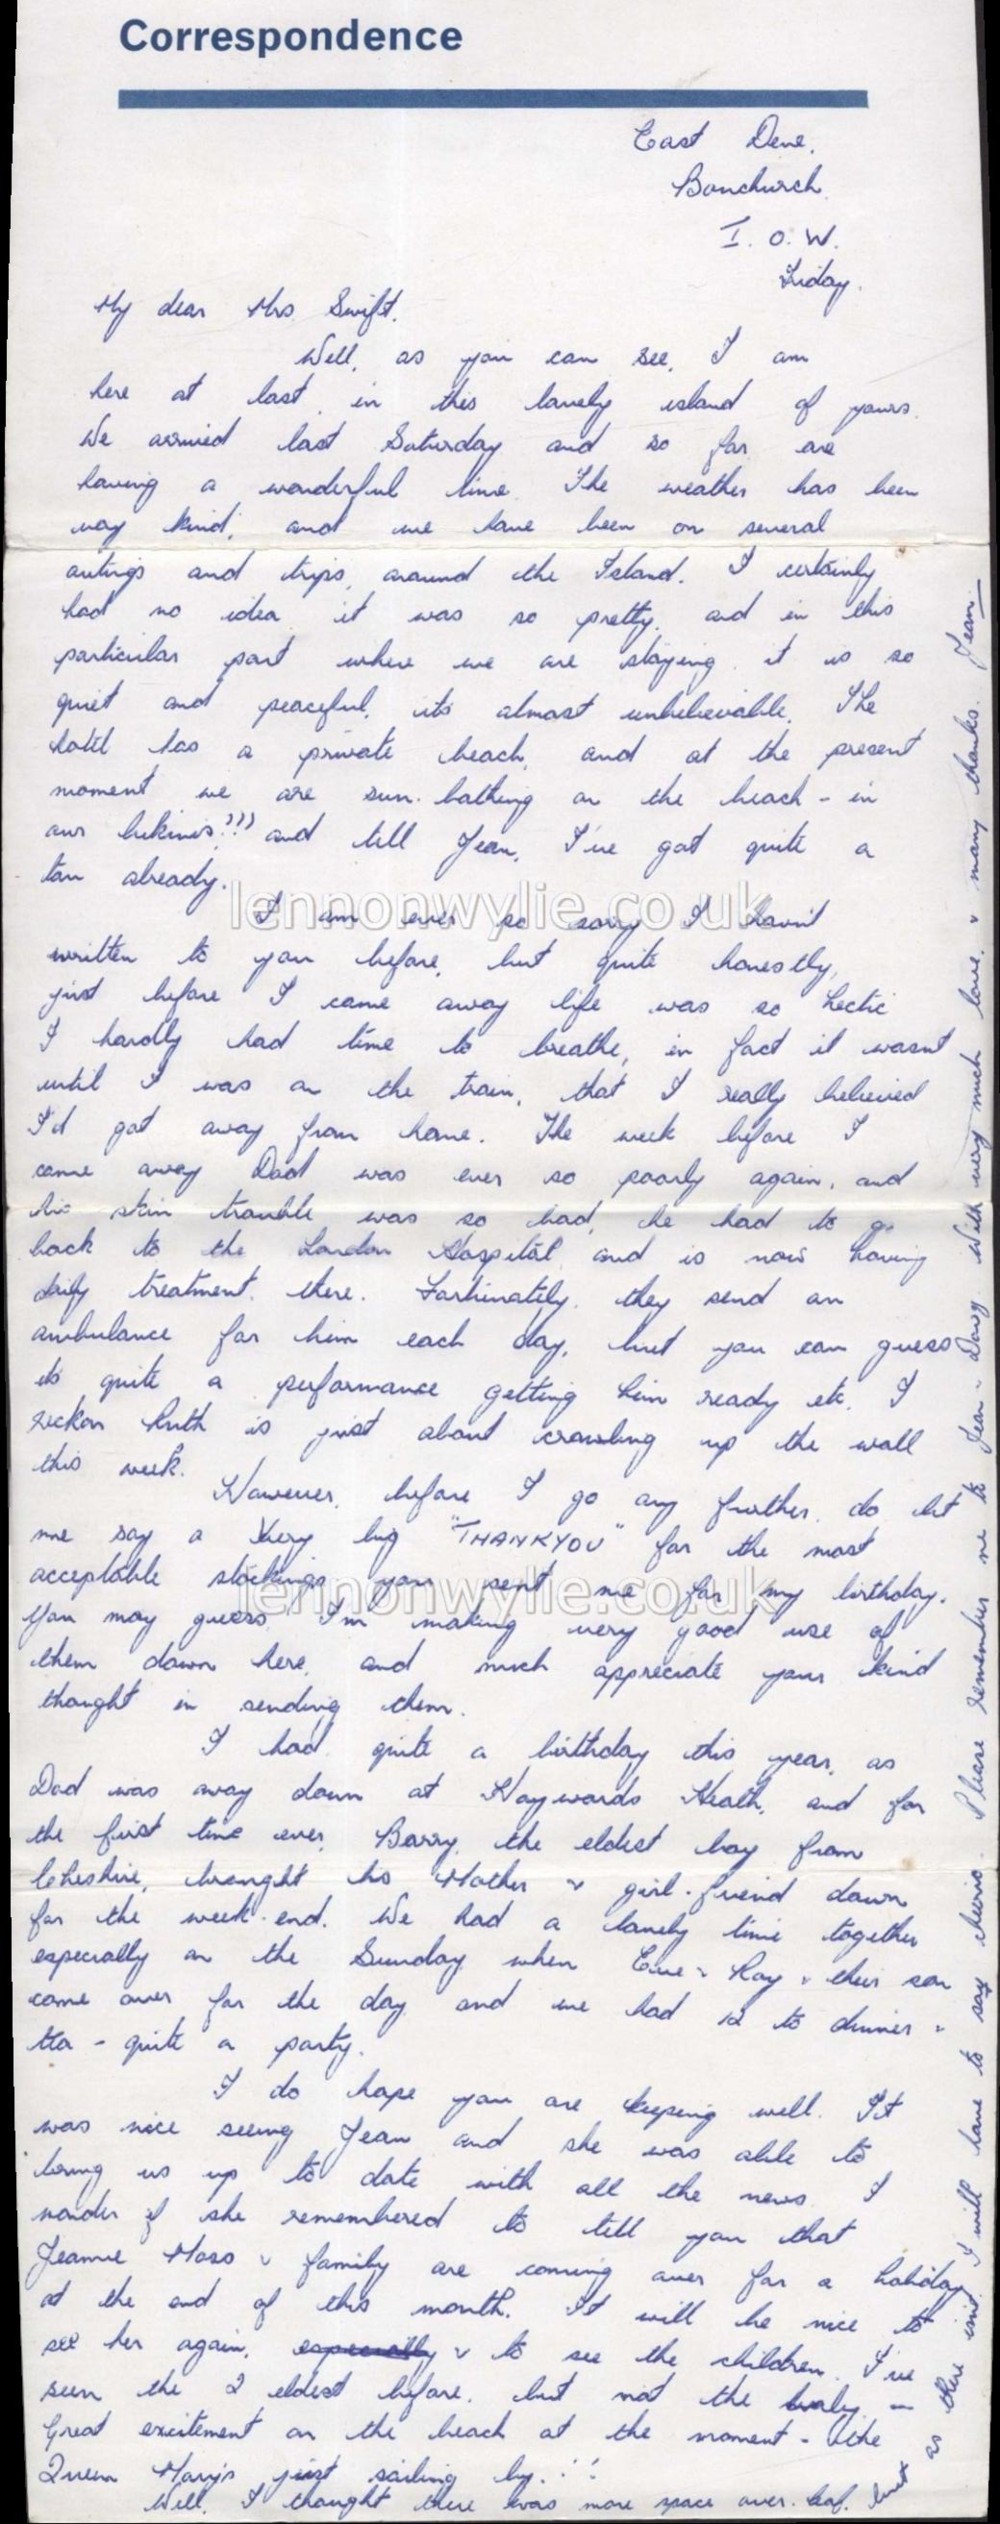 Correspondence
East Dene.
Bonchurch.
I. O. W.
Friday.
My dear Mrs Swift.
Well, as you can see, I am
here at last, in this lovely island of yours.
We arrived last Saturday and so far are
having a wonderful time. The weather has been
very kind, and we have been on several
outings and trips, around the Island. I certainly
had no idea it was so pretty, and in this
particular part where we are staying it is so
quiet and peaceful, its almost unbelievable. The
hotel has a private beach, and at the present
moment we are sun-bathing on the beach - in
our bikinis!!! and tell Jean, I've got quite a
tan already.
I am ever so sorry I havn't
written to you before, but quite honestly,
just before I came away life was so hectic
I hardly had time to breathe, in fact it wasnt
until I was on the train, that I really believed
I'd got away from home. The week before I
came away Dad was ever so poorly again, and
his skin trouble was so bad, he had to go
back to the London Hospital and is now having
daily treatment there. Fortunately, they send an
ambulance for him each day, but you can guess
its quite a performance getting him ready etc. I
reckon Ruth is just about crawling up the wall
this week.
However, before I go any further, do let
me say a Very big "THANKYOU" for the most
acceptable stockings you sent me for my birthday.
You may guess I'm making very good use of
them down here, and much appreciate your kind
thought in sending them.
I had quite a birthday this year, as
Dad was away down at Haywards Heath, and for
the first time ever, Barry, the eldest boy from
Cheshire, brought his Mother & girl-friend down
for the week-end. We had a lovely time together
especially on the Sunday when Eve & Ray & their son
came over for the day and we had 12 to dinner &
tea - quite a party.
I do hope you are keeping well. It
was nice seeing Jean and she was able to
bring us up to date with all the news. I
wonder if she remembered to tell you that
Jeanne Moss & family are coming over for a holiday
at the end of this month. It will be nice to
see her again, especially & to see the children. I've
seen the 2 eldest before, but not the baby -
Great excitement on the beach at the moment - the
Queen Mary's just sailing by..!!
Well, I thought there was more space over-leaf, but as there isnt I will have to say cheerio. Please remember me to Jean & Doug. With very much love, & many thanks. Jean.
lennonwylie.co.uk
lennonwylie.co.uk